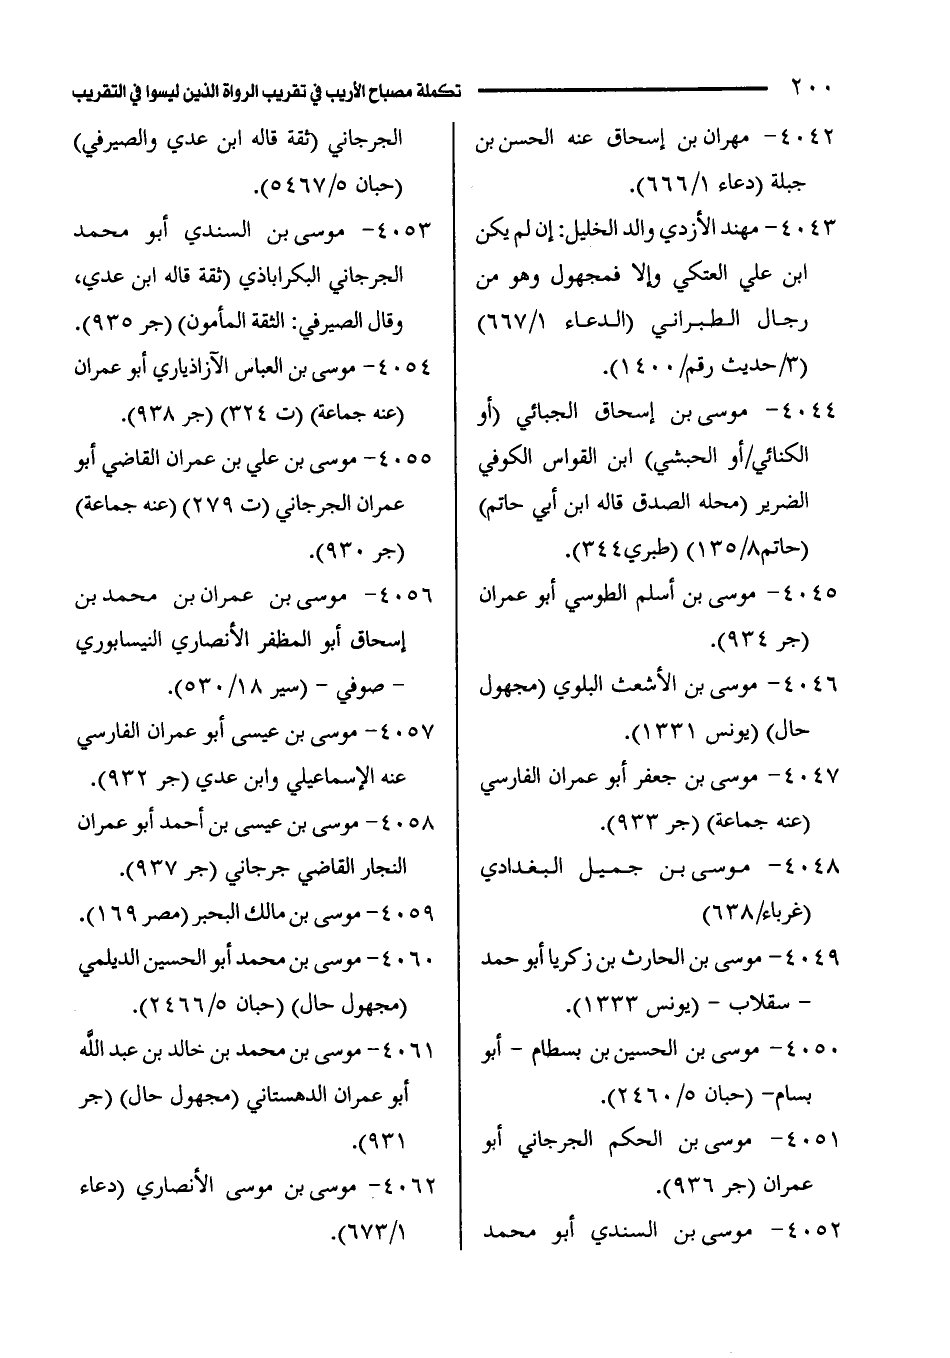 ٢٠٠ تكملة مصباح الأريب في تقريب الرواة الذين ليسوا في التقريب
٤٠٤٢- مهران بن إسحاق عنه الحسن بن
جبلة (دعاء ٦٦٦/١).
٤٠٤٣- مهند الأزدي والد الخليل: إن لم يكن
ابن علي العتكي وإلا فمجهول وهو من
رجال الطبراني (الدعاء ٦٦٧/١)
(٣/حديث رقم/١٤٠٠).
٤٠٤٤- موسى بن إسحاق الجبائي (أو
الكنائي/أو الحبشي) ابن القواس الكوفي
الضرير (محله الصدق قاله ابن أبي حاتم)
(حاتم١٣٥/٨) (طبري٣٤٤).
٤٠٤٥- موسى بن أسلم الطوسي أبو عمران
(جر ٩٣٤).
٤٠٤٦- موسى بن الأشعث البلوي (مجهول
حال) (يونس ١٣٣١).
٤٠٤٧- موسى بن جعفر أبو عمران الفارسي
(عنه جماعة) (جر ٩٣٣).
٤٠٤٨- موسى بن جميل البغدادي
(غرباء/٦٣٨)
٤٠٤٩- موسى بن الحارث بن زكريا أبو حمد
- سقلاب - (يونس ١٣٣٣).
٤٠٥٠- موسى بن الحسين بن بسطام - أبو
بسام- (حبان ٢٤٦٠/٥).
٤٠٥١- موسى بن الحكم الجرجاني أبو
عمران (جر ٩٣٦).
٤٠٥٢- موسى بن السندي أبو محمد
الجرجاني (ثقة قاله ابن عدي والصيرفي)
(حبان ٥٤٦٧/٥).
٤٠٥٣- موسى بن السندي أبو محمد
الجرجاني البكراباذي (ثقة قاله ابن عدي،
وقال الصيرفي: الثقة المأمون) (جر ٩٣٥).
٤٠٥٤- موسى بن العباس الآزاذياري أبو عمران
(عنه جماعة) (ت ٣٢٤) (جر ٩٣٨).
٤٠٥٥- موسى بن علي بن عمران القاضي أبو
عمران الجرجاني (ت ٢٧٩) (عنه جماعة)
(جر ٩٣٠).
٤٠٥٦- موسى بن عمران بن محمد بن
إسحاق أبو المظفر الأنصاري النيسابوري
- صوفي - (سير ٥٣٠/١٨).
٤٠٥٧- موسى بن عيسى أبو عمران الفارسي
عنه الإسماعيلي وابن عدي (جر ٩٣٢).
٤٠٥٨- موسى بن عيسى بن أحمد أبو عمران
النجار القاضي جرجاني (جر ٩٣٧).
٤٠٥٩- موسى بن مالك البحبر (مصر ١٦٩).
٤٠٦٠- موسى بن محمد أبو الحسين الديلمي
(مجهول حال) (حبان ٢٤٦٦/٥).
٤٠٦١- موسى بن محمد بن خالد بن عبد اللَّه
أبو عمران الدهستاني (مجهول حال) (جر
٩٣١).
٤٠٦٢- موسى بن موسى الأنصاري (دعاء
٦٧٣/١).